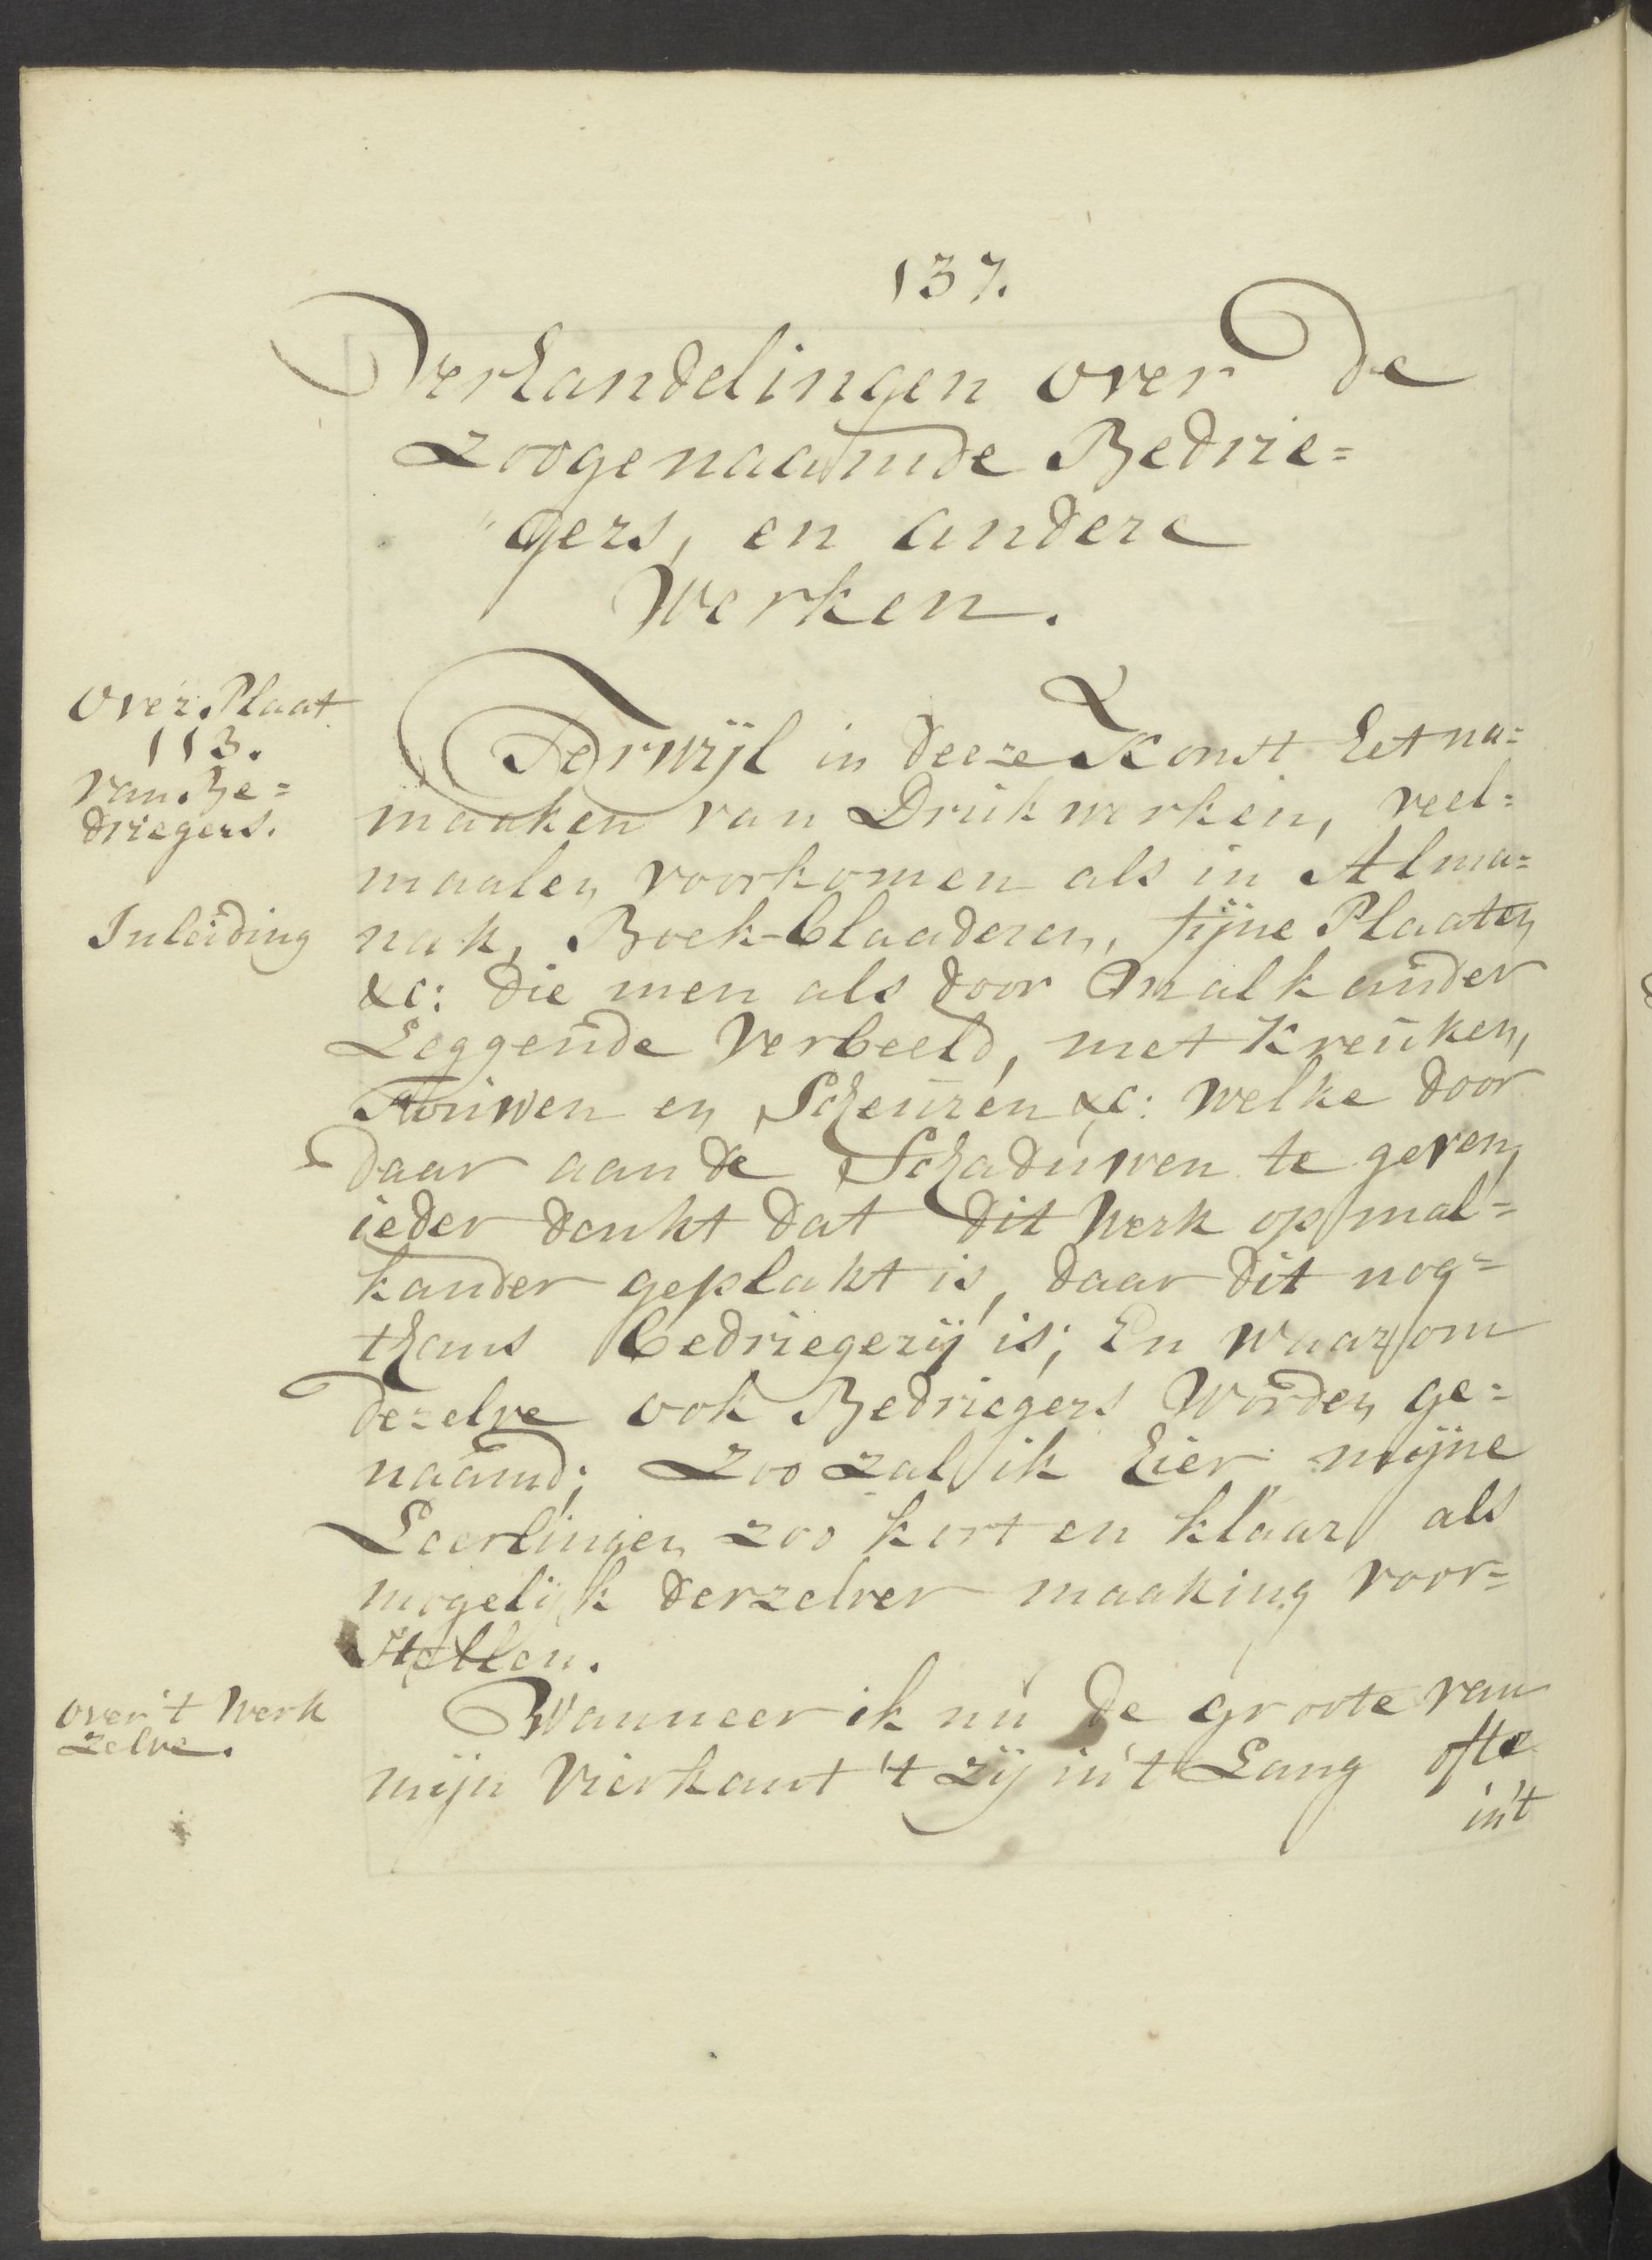 137.
Verhandelingen over de
zoogenaamde Bedrie=
gers, en andere
Werken.
Over Plaat
113.
van Be=
driegers.
Terwijl in deeze Konst het na=
maaken van Drukwerken, veel=
maalen voorkomen als in Alma=
Inleiding
nak, Boek-blaaderen, fijne Plaaten
&c: die men als door malkander
Leggende verbeeld, met Kreuken,
Vouwen en Scheuren &c: welke door
daar aan de Schaduwen te geven,
ieder denkt dat dit Werk op mal=
kander geplakt is, daar dit nog=
thans bedriegerij is; En waarom
dezelve ook Bedriegers Worden ge=
naamd; Zoo zal ik hier mijne
Leerlingen zoo kort en klaar als
mogelijk derzelver maaking voor=
stellen.
over 't Werk
zelve.
Wanneer ik nu de groote van
mijn Vierkant 't zij in 't Lang ofte
in 't